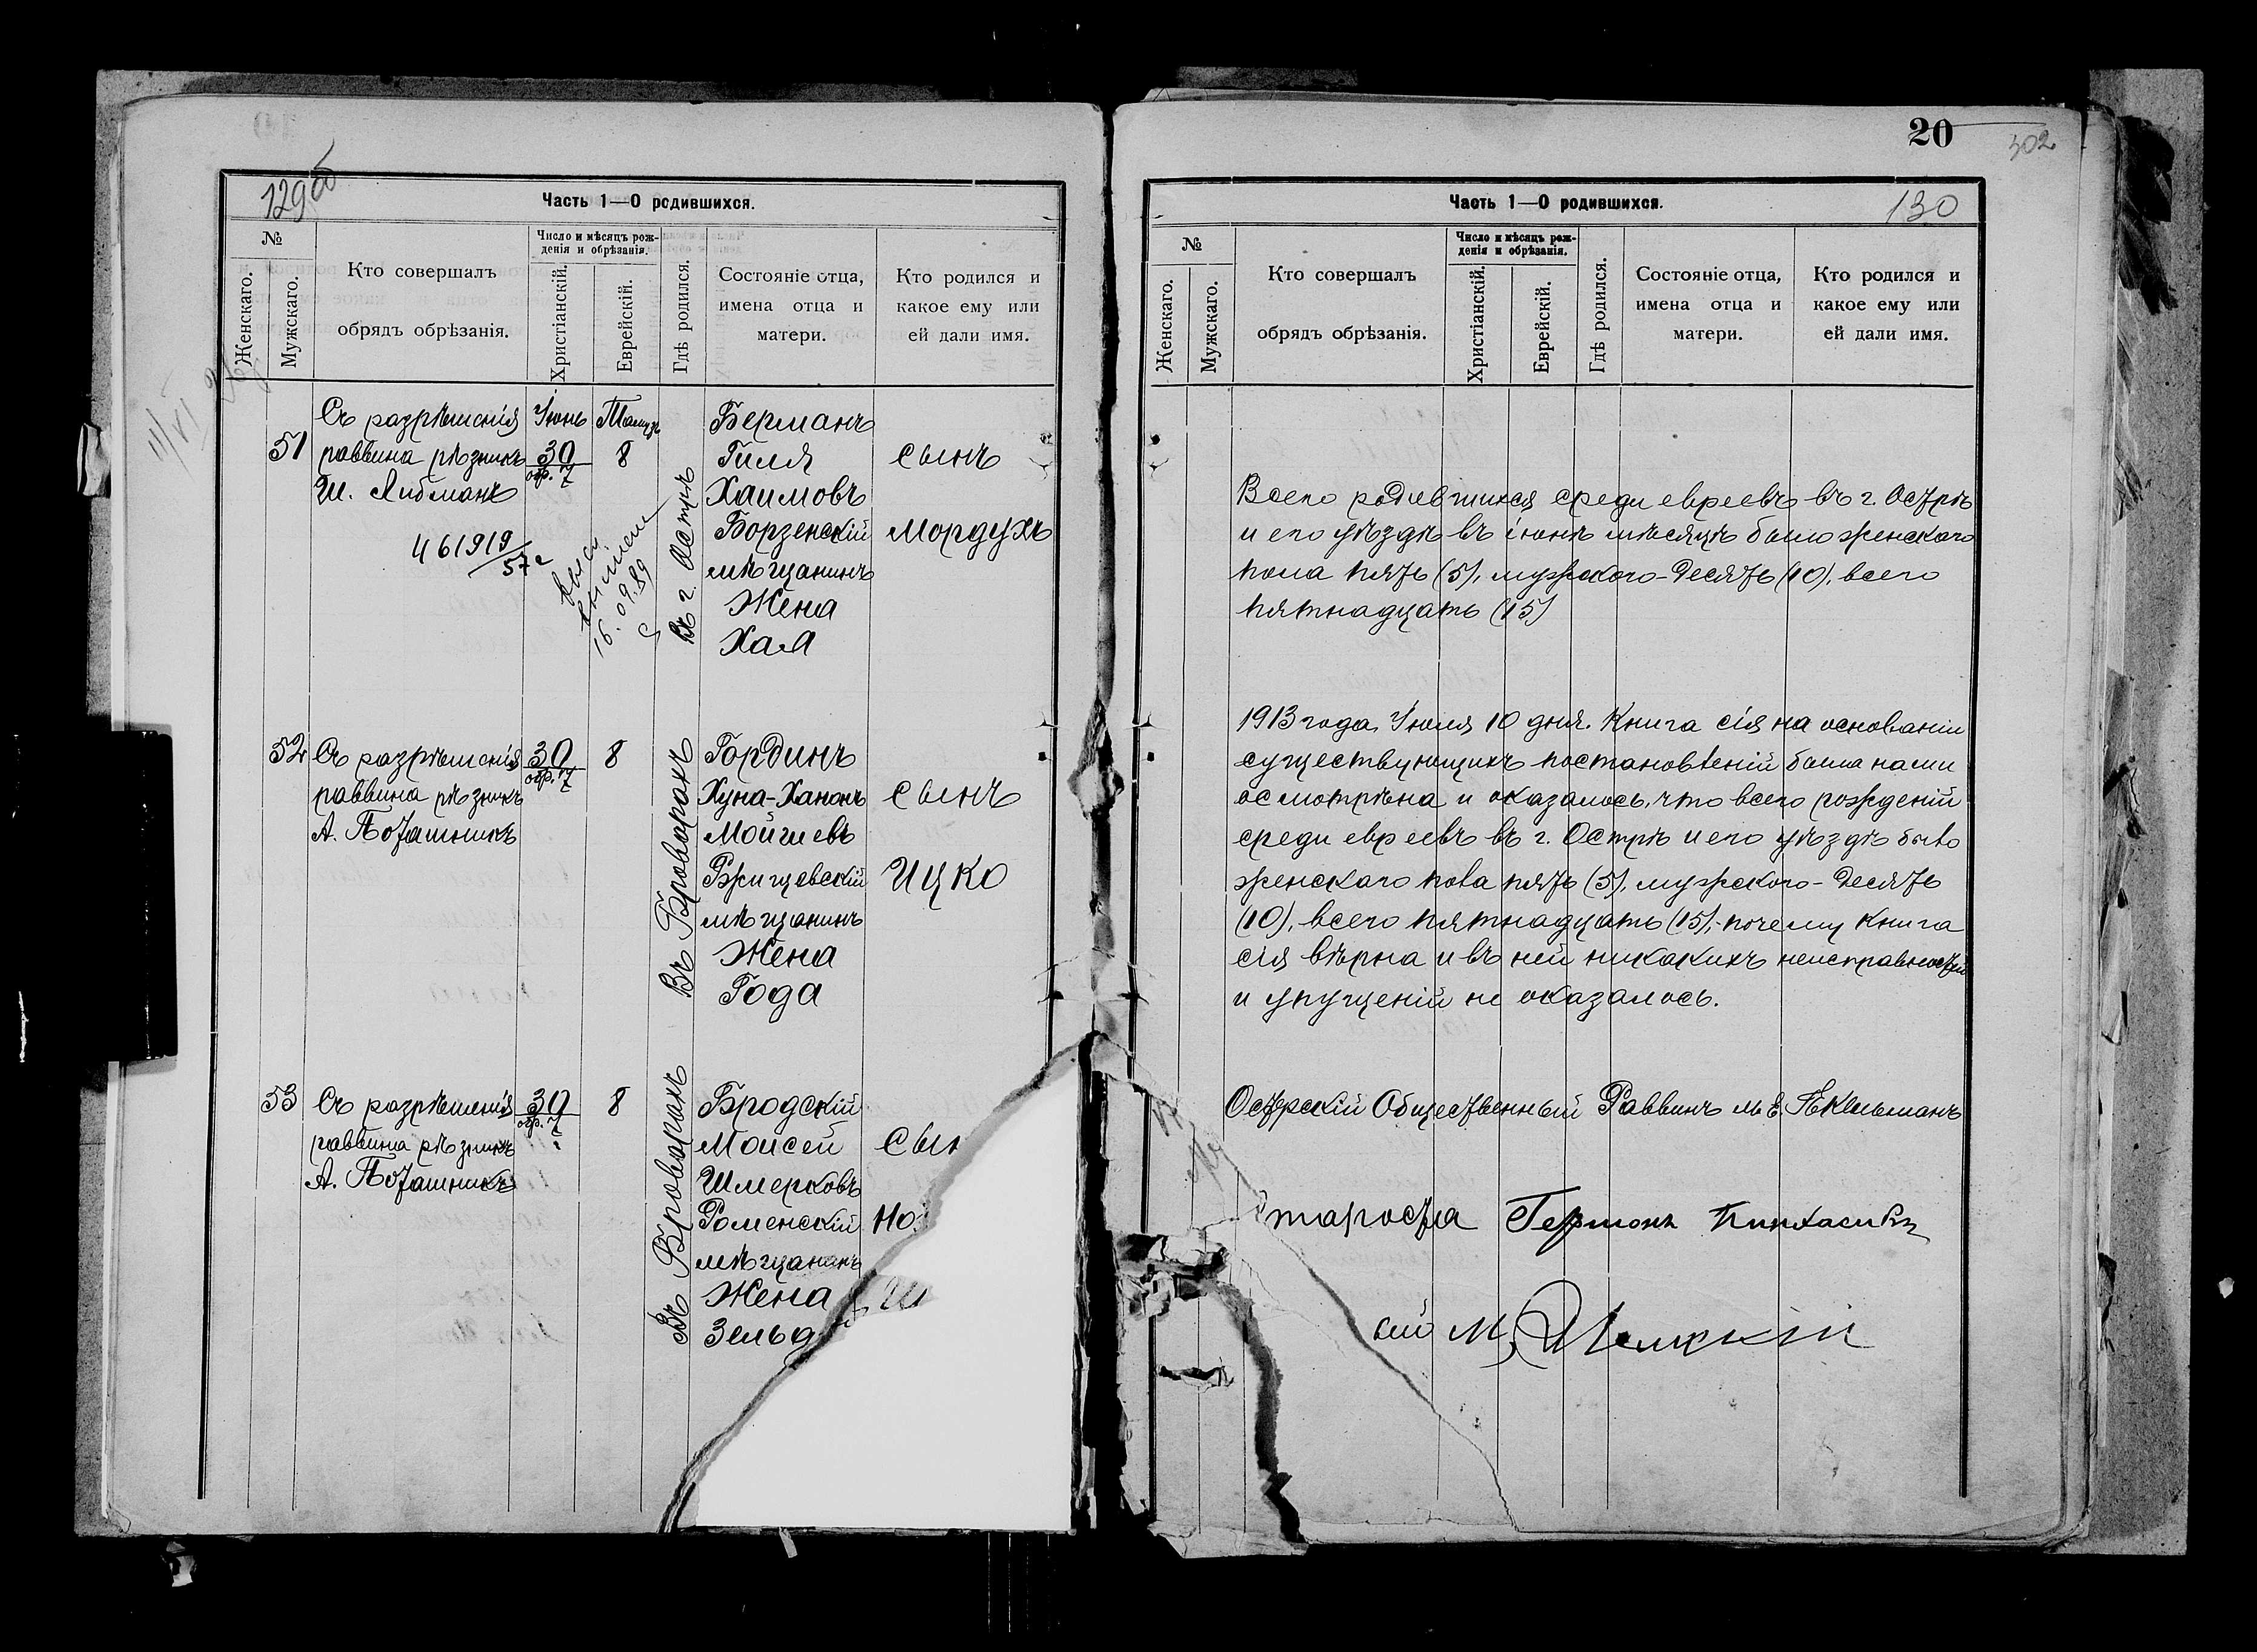 129об
Часть 1—О родившихся.
№
Женскаго.
Мужскаго.
Кто совершалъ
обрядъ обрѣзанія.
Число и мѣсяцъ рож-
денія и обрѣзанія.
Христіанскій.
Еврейскій.
Гдѣ родился.
Состояніе отца,
имена отца и
матери.
Кто родился и
какое ему или
ей дали имя.
51
Съ разрѣшенія
раввина рѣзникъ
Ш. Либманъ
Іюнь
30
обр. 7
Тамузъ
8
Въ г. Острѣ
Берманъ
Гиля
Хаимовъ
Борзенскій
мѣщанинъ
Жена
Хая
сынъ
Мордухъ
461919
57г
16.09.89
52
Съ разрѣшенія
раввина рѣзникъ
А. Поташникъ
30
обр. 7
8
Въ Броварахъ
Гординъ
Хуна-Ханонъ
Мойшевъ
Ржищевскій
мѣщанинъ
Жена
Года
сынъ
Ицко
53
Съ разрѣшенія
раввина рѣзникъ
А. Поташникъ
30
обр. 7
8
Въ Броварахъ
Бродскій
Моисей
Шмерковъ
Роменскій
мѣщанинъ
Жена
Зельд
сын
Но
20
302
Часть 1—О родившихся.
130
№
Женскаго.
Мужскаго.
Кто совершалъ
обрядъ обрѣзанія.
Число и мѣсяцъ рож-
денія и обрѣзанія.
Христіанскій.
Еврейскій.
Гдѣ родился.
Состояніе отца,
имена отца и
матери.
Кто родился и
какое ему или
ей дали имя.
Всего родившихся среди евреевъ въ г. Острѣ
и его уѣздѣ въ іюнѣ мѣсяцѣ было женскаго
пола пять (5), мужского-десять (10), всего
пятнадцать (15)
1913 года Іюля 10 дня. Книга сія на основаніи
существующихъ постановленій была нами
осмотрѣна и оказалось, что всего рожденій
среди евреевъ въ г. Острѣ и его уѣздѣ было
женскаго пола пять (5), мужского-десять
(10), всего пятнадцать (15),-почему книга
сія вѣрна и въ ней никакихъ неисправностей
и упущеній не оказалось.
Остерскій Общественный Раввинъ М. Е. Пкельманъ
тароста Гершонъ
кій М.